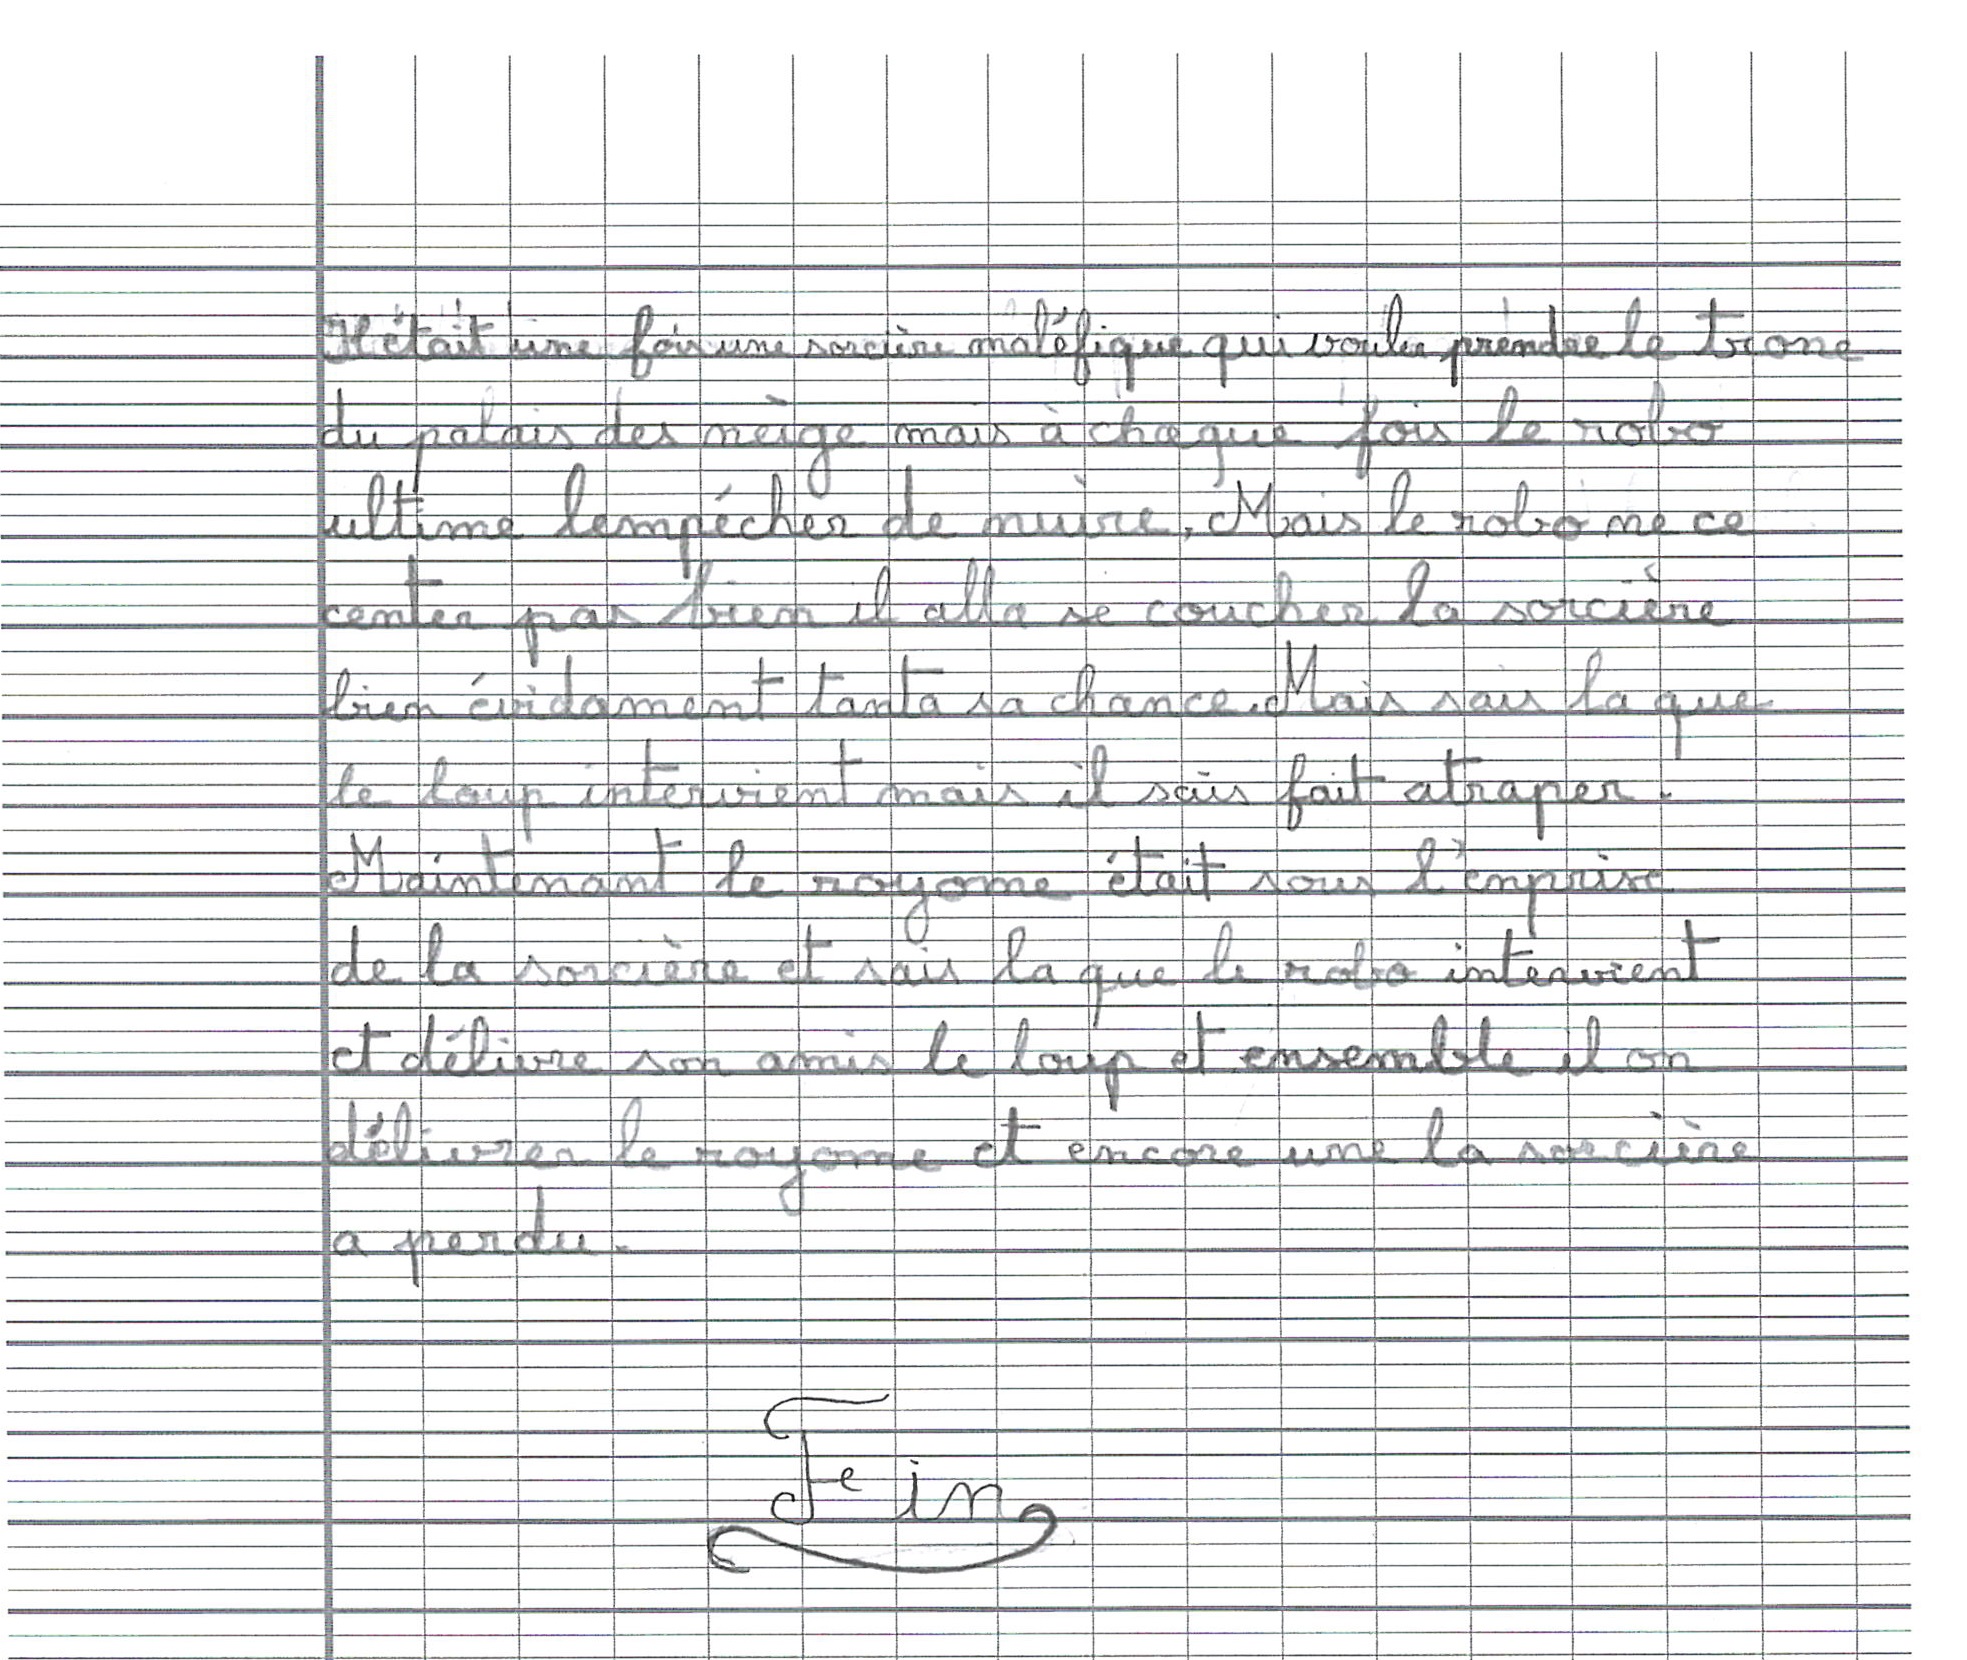 Il était une fois une sorcière maléfique qui vouler prendre le trone
du palais des neige mais à chaque fois le robo
ultime lempécher de nuire, Mais le robo ne ce
center pas bien il alla se coucher la sorcière
bien évidament tanta sa chance. Mais sais la que
le loup intervient mais il sais fait atraper.
Maintenant le royome était sous l'enprise
de la sorcière et sais la que le robo intervient
et délivre son amis le loup et ensemble il on
délivrer le royome et encore une la sorcière
a perdu.
Fin